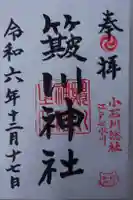 奉拝
小石川総社
簸川神社
令和六年十二月十七日